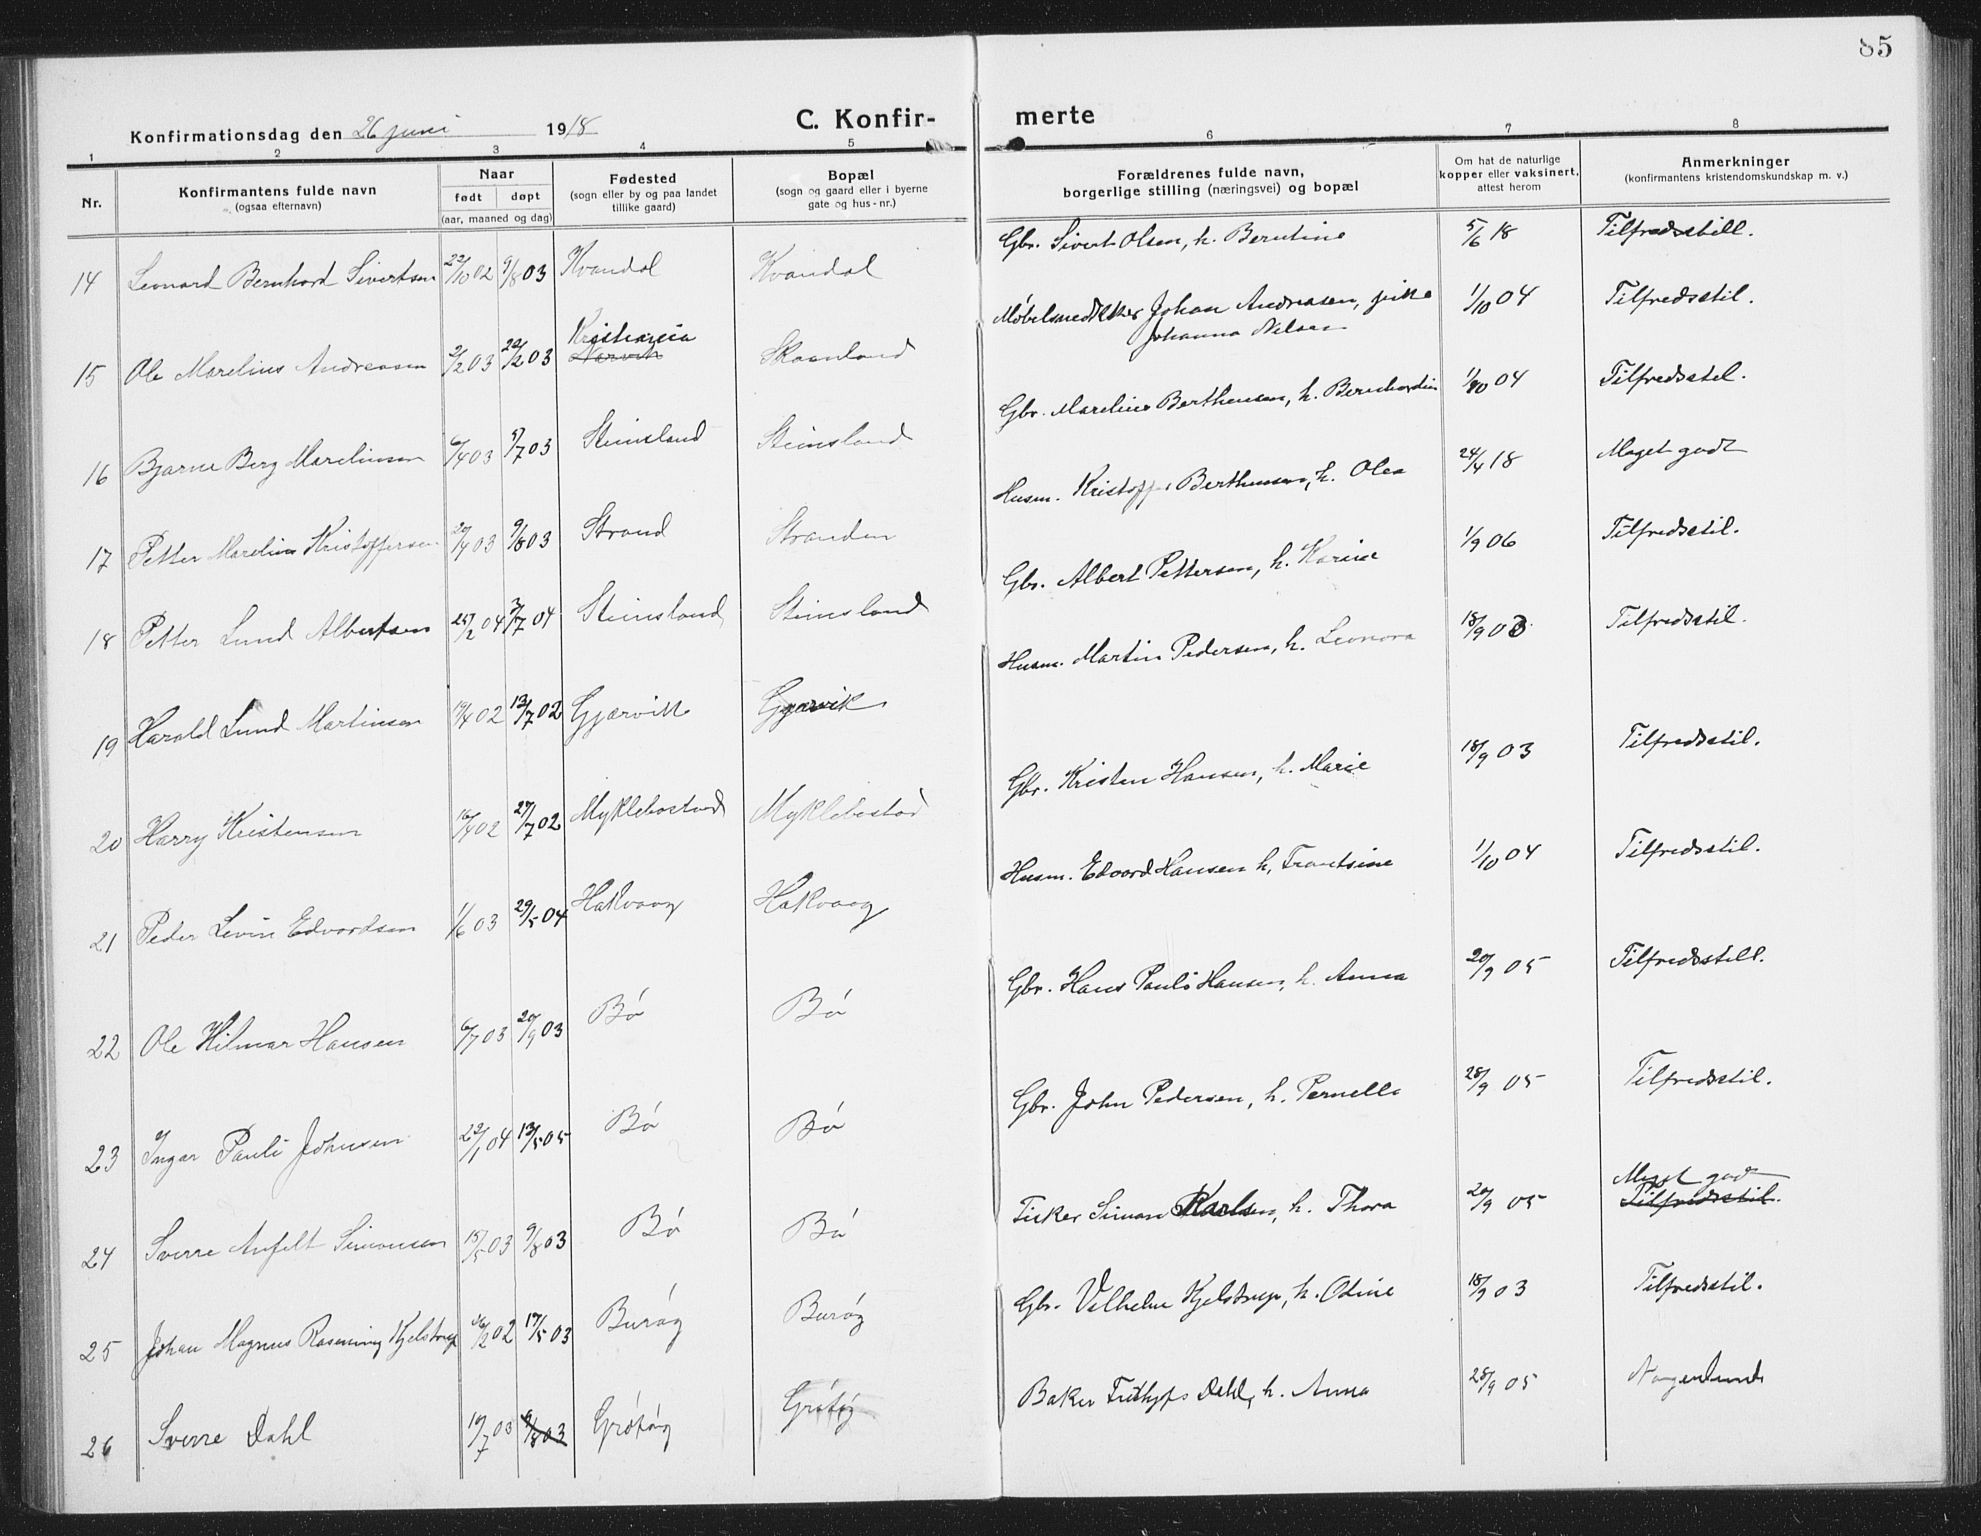 85
Konfirmationsdag den 26 juni 1918
C. Konfir-merte
1 2 3 4 5 6 7 8
Nr.
Konfirmantens fulde navn
(ogsaa efternavn)
Naar
født døpt
(aar, maaned og dag)
Fødested
(sogn eller by og paa landet
tillike gaard)
Bopæl
(sogn og gaard eller i byerne
gate og hus-nr.)
Forældrenes fulde navn,
borgerlige stilling (næringsvei) og bopæl
Om hat de naturlige
kopper eller vaksinert,
attest herom
Anmerkninger
(konfirmantens kristendomskundskap m. v.)
14 Leonard Bernhard Sivertsen 22/10 02 9/8 03 Kvandal Kvandal Gbr. Sivert Olsen, h. Berntine 5/6 18 Tilfredsstill.
15 Ole Marelius Andreasen 2/2 03 22/2 03 Kristiania Narvik Skaanland Møbelsnedkker Johan Andreasen, pike 1/10 04 Tilfredsstil.
Johanna Nilsen
16 Bjarne Berg Mareliussen 6/4 03 5/7 03 Steinsland Steinsland Gbr. Marelius Berthensen, h. Bernhardin 1/10 04 Tilfredsstil.
17 Petter Marelius Kristoffersen 20/4 03 9/8 03 Strand Stranden Husm. Kristoffer Berthensen, h. Olea 24/4 18 Maget godt
18 Petter Lund Albertsen 25/2 04 3/7 04 Steinsland Steinsland Gbr. Albert Pettersen, h. Karine 1/9 06 Tilfredsstil.
19 Harald Lund Martinsen 19/4 02 13/7 02 Gjærvik Gjærvik Husm. Martin Pedersen, h. Leonora 18/9 03 Tilfredsstil.
20 Harry Kristensen 16/4 02 27/7 02 Myklebostad Myklebostad Gbr. Kristen Hansen, h. Marie 18/9 03 Tilfredsstil.
21 Peder Levin Edvardsen 1/6 03 29/5 04 Hakvaag Hakvaag Husm. Edvard Hansen h. Frantsine 1/10 04 Tilfredsstil.
22 Ole Hilmar Hansen 6/7 03 20/9 03 Bø Bø Gbr. Hans Pauli Hansen, h. Anna 20/9 05 Tilfredsstill.
23 Ingar Pauli Johnsen 22/1 04 13/5 05 Bø Bø Gbr. John Pedersen, h. Pernella 28/9 05 Tilfredsstil.
24 Sverre Anfelt Simonsen 15/5 03 9/8 03 Bø Bø Fisker Simon Karlsen, h. Thora 20/9 05 Meget god Tilfredsstil.
25 Johan Magnus Rasening Kjelstrup 17/5 03 Burøy Burøy Gbr. Vilhelm Kjelstrup, h. Odine 18/9 03 Tilfredsstil.
26 Sverre Dahl 10/7 03 9/8 03 Grøtøy Grøtøy Baker Dahl, h. Anna 28/9 05 Nogenlunde